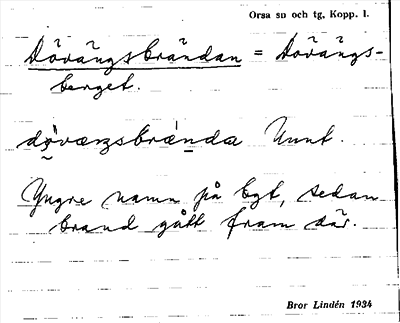 Orsa sn och tg, Kopp. l.
Dövängsbrändan = Dövängs-
berget.
dövæŋsbrænda Unnt.
Yngre namn på bgt, sedan
brand gått fram där.
Bror Lindén 1934